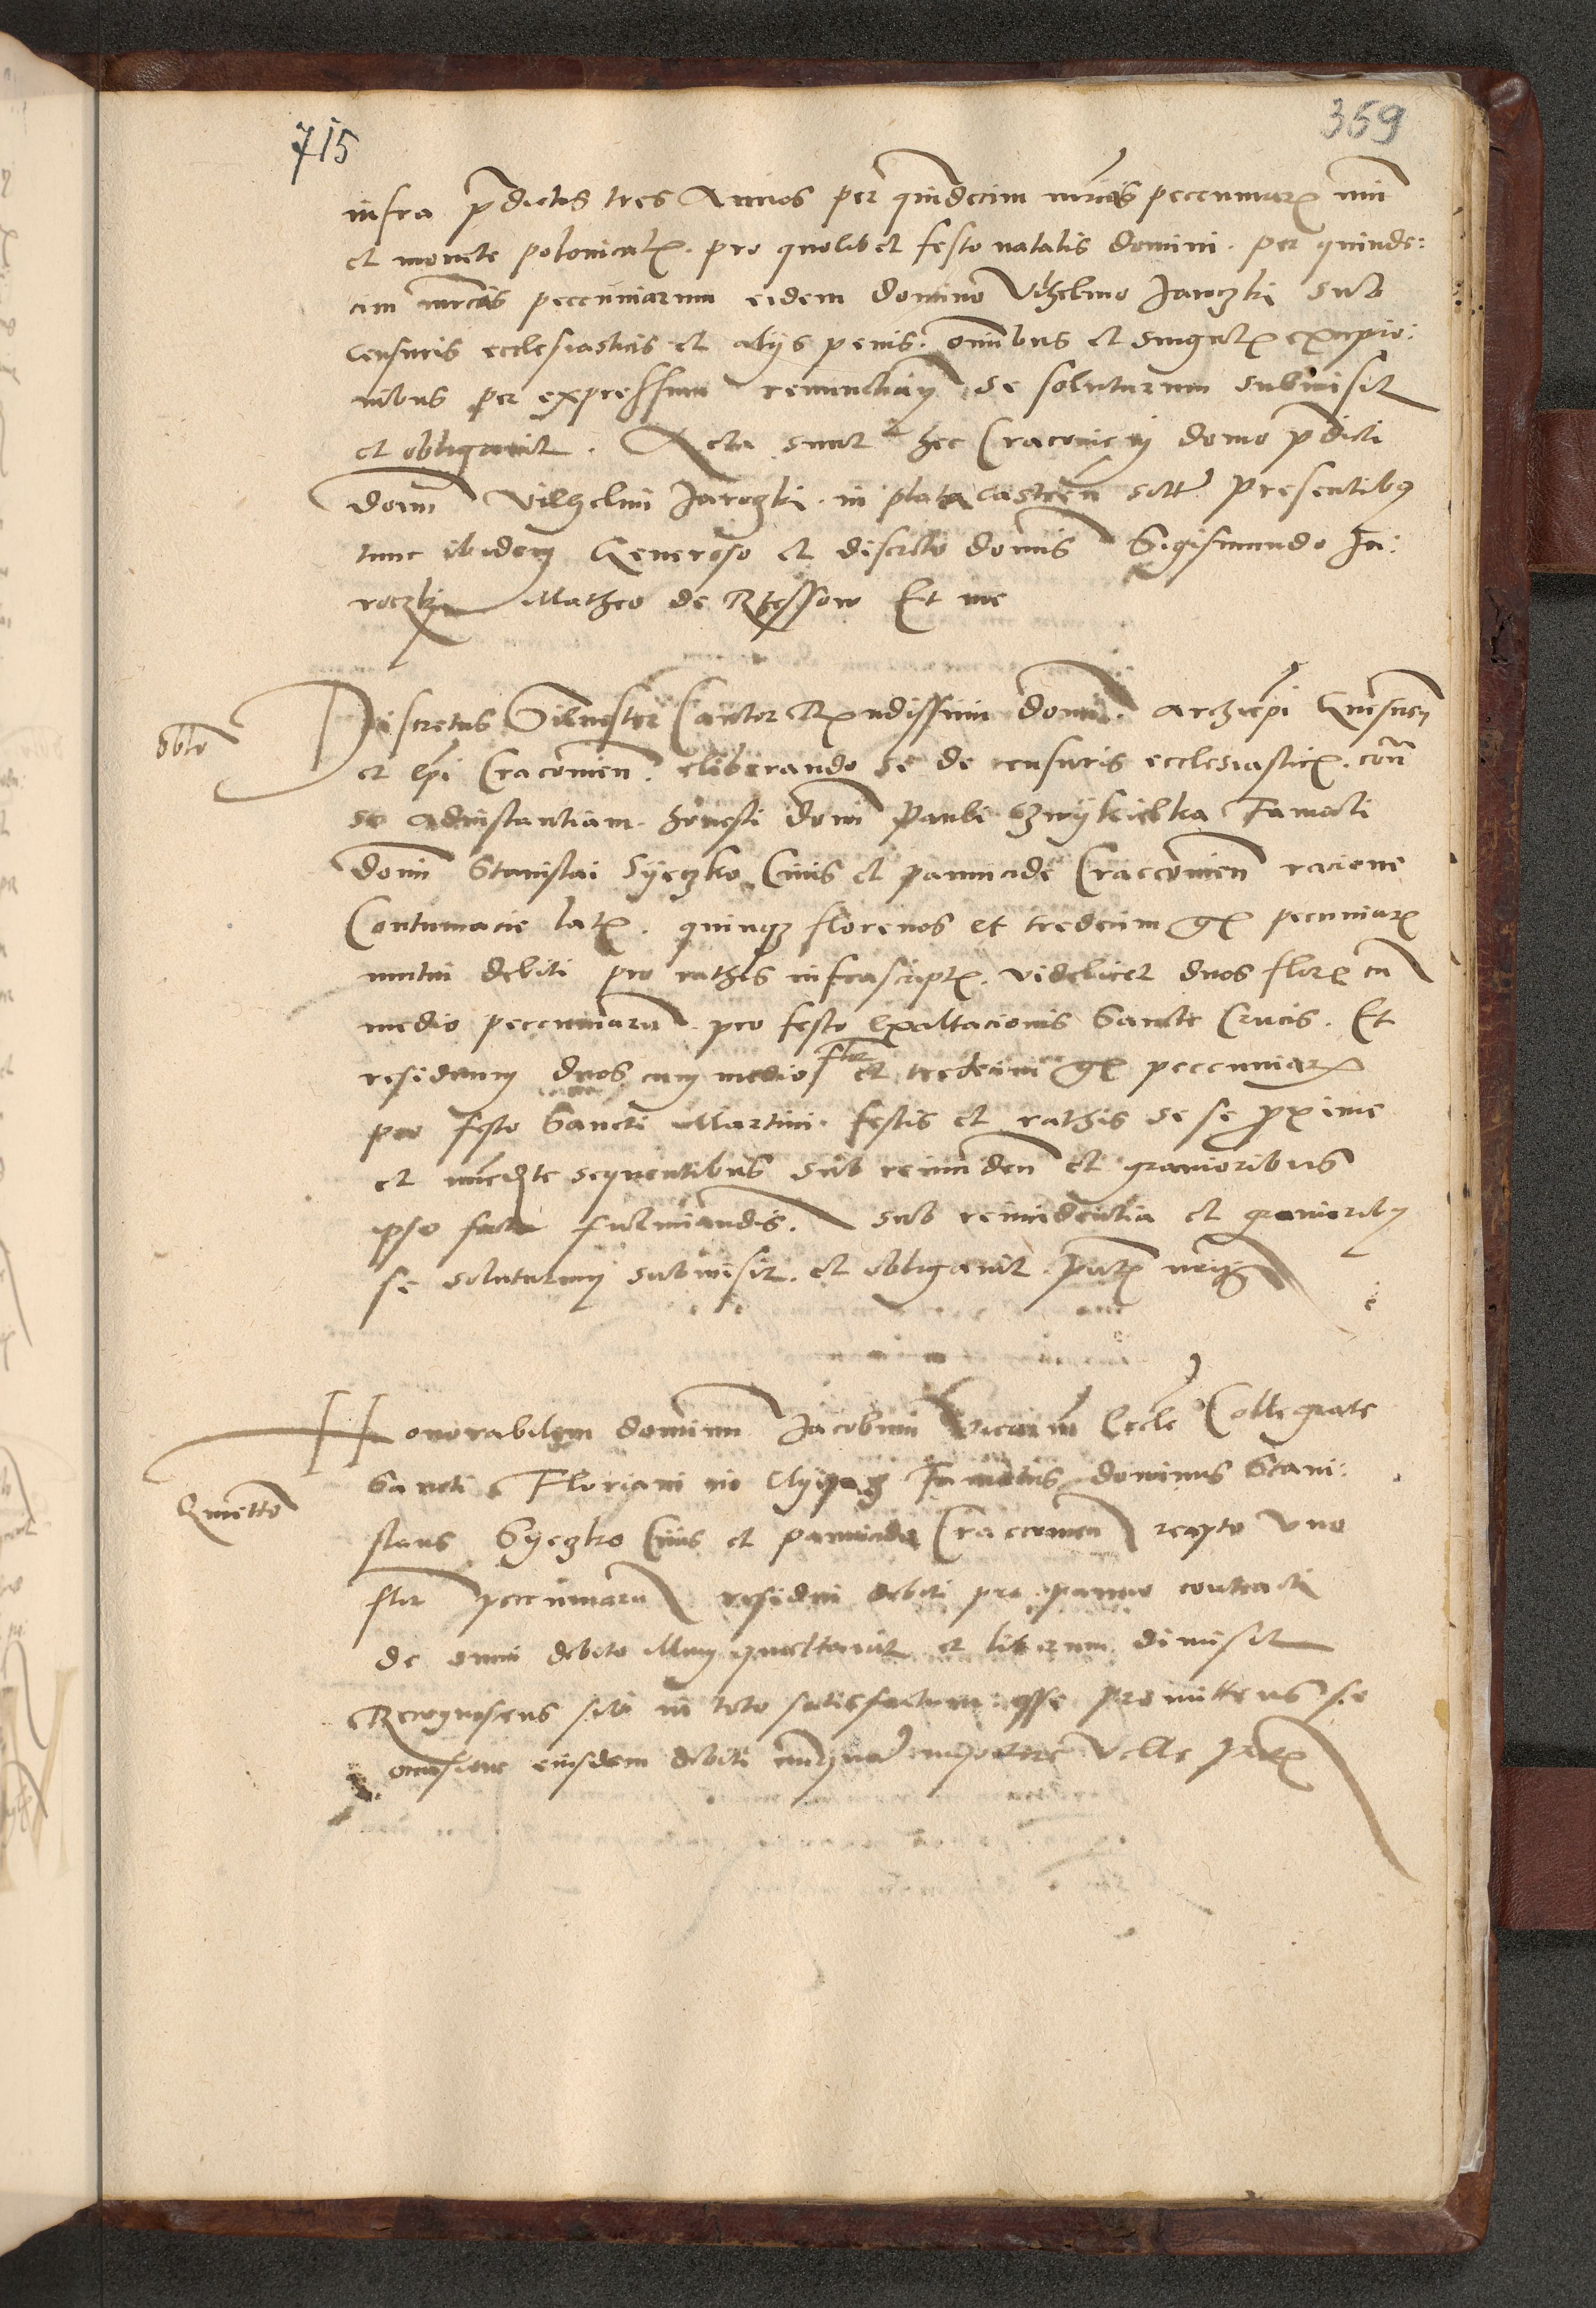 715
359
infra p̄dictos tres Annos per quindecim mrcas peccuniarꝝ nūi
et monete polonicalꝭ. pro quolibet festo natalis domini. per quinde:
cim mrcas peccuniarum eidem domino Vilhelmo Jaroczki sub
censuris ecclesiasticis et alijs penis. omibus et singulꝭ excepcio:
nibus per expressum renunctiañ se soluturum submisit
et obligauit. Acta sunt hec Cracouie in domo p̄dicti
domi Vilhelmi Jaroczki. in platea castreñ sitt presentibꝯ
tunc ibidem Generoso et discreto domis Sigismundo Ja:
roczki Matheo de Rzessow Et me
Obło
Discretus Siluester Cantor Rꝛndissimi domi. archiepi Gnesneñ
et epi Cracouien. eliberando se de censuris ecclesiasticꝭ. conᵃ
se adinstantiam. honesti domi Pauli famati
domi Stanislai Syeczko Ciuis et pannicide Craccouien racione
Contumacie latꝭ. quinqꝫ florenos et tredecim gꝭ pecuniarꝝ
mutui debiti pro rathis infrascriptꝭ. videlicet duos florꝭ cū
medio peccuniarū. pro festo exaltacionis Sancte Crucis. Et
residuum duos cum medio flor et tredecim gꝭ peccuniarꝝ
pro festo Sancti Martini. festis et rathis se se proxime
et imēdᵗᵉ sequentibus sub reinciden et grauioribus
ipso facto fulminandis. sub reincidentia et grauioribꝯ
se soluturum submisit. et obligauit. pntꝭ
Quietto
Honorabilem dominum Jacobum vicariū Eccle Collegiate
Sancti Floriani in Clypaꝫ famatus dominus Stani:
slaus Syeczko Ciuis et pannicida Craccouien recepto vno
flor peccuniarū residui debiti pro panno contracti
de omni debito illum quiettauit et liberum dimisit
Recognoscens sibi in toto satisfactum esse promittens se
occasione eiusdem debiti nunqua impetere velle pntꝭ